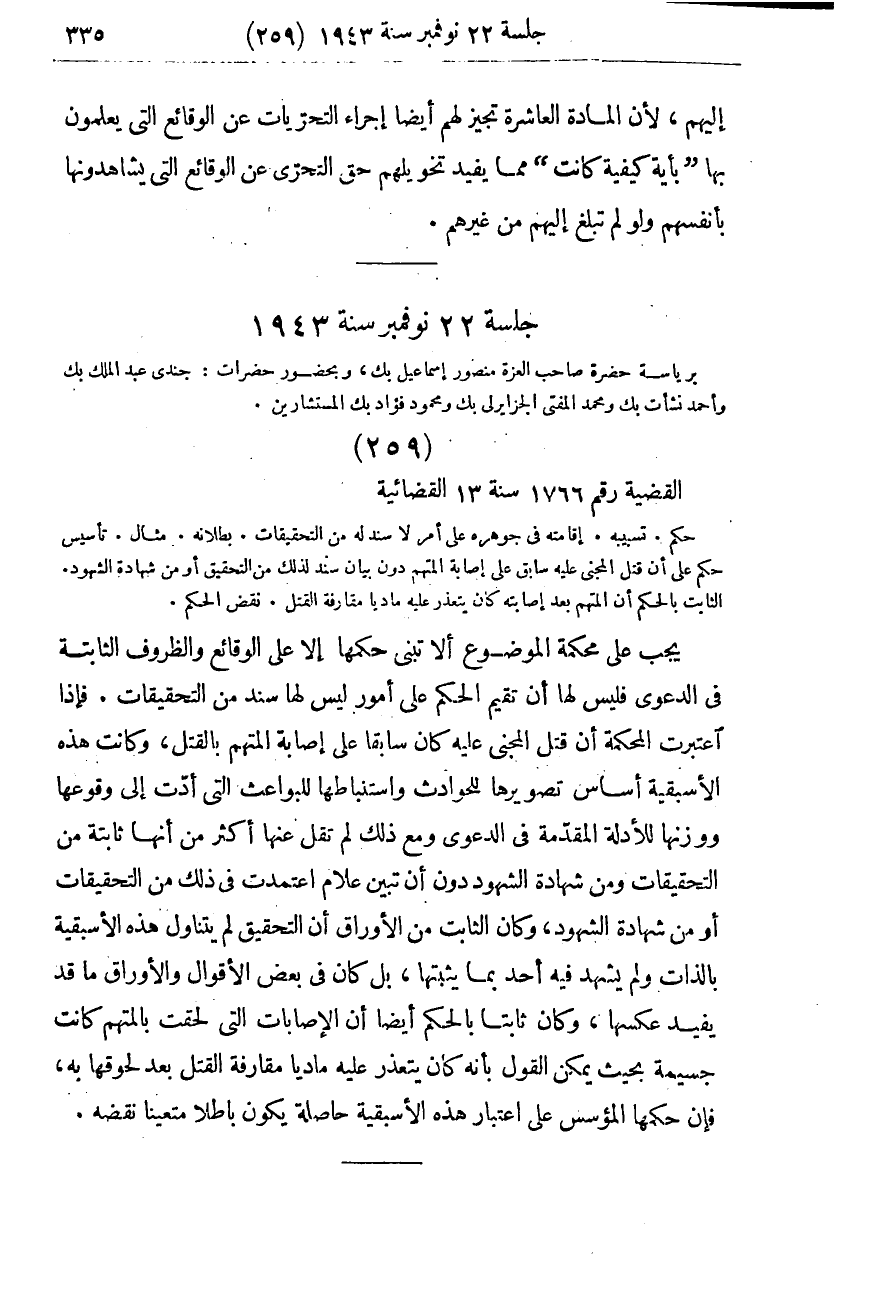 جلسة ٢٢ نوفمبر سنة ١٩٤٣ (٢٥٩) ٣٣٥
إليهم ، لأن المادة العاشرة تجيز لهم أيضا إجراء التحرّيات عن الوقائع التى يعلمون
بها ”بأية كيفية كانت“ مما يفيد تخويلهم حق التحرّى عن الوقائع التى يشاهدونها
بأنفسهم ولو لم تبلغ إليهم من غيرهم .
جلسة ٢٢ نوفمبر سنة ١٩٤٣
برياسة حضرة صاحب العزة منصور إسماعيل بك ، وبحضور حضرات : جندى عبد الملك بك
وأحمد نشأت بك ومحمد المفتى الجزايرلى بك ومحمود فؤاد بك المستشارين .
(٢٥٩)
القضية رقم ١٧٦٦ سنة ١٣ القضائية
حكم . تسبيبه . إقامته فى جوهره على أمر لا سند له من التحقيقات . بطلانه . مثال . تأسيس
حكم على أن قتل المجنى عليه سابق على إصابة المتهم دون بيان سند لذلك من التحقيق أو من شهادة الشهود.
الثابت بالحكم أن المتهم بعد إصابته كان يتعذر عليه ماديا مقارفة القتل . نقض الحكم .
يجب على محكمة الموضوع ألا تبنى حكمها إلا على الوقائع والظروف الثابتة
فى الدعوى فليس لها أن تقيم الحكم على أمور ليس لها سند من التحقيقات . فإذا
آعتبرت المحكة أن قتل المجنى عليه كان سابقا على إصابة المتهم بالقتل ، وكانت هذه
الأسبقية أساس تصويرها للحوادث واستنباطها للبواعث التى أدّت إلى وقوعها
ووزنها للأدلة المقدّمة فى الدعوى ومع ذلك لم تقل عنها أكثر من أنها ثابتة من
التحقيقات ومن شهادة الشهود دون أن تبين علام اعتمدت فى ذلك من التحقيقات
أو من شهادة الشهود ، وكان الثابت من الأوراق أن التحقيق لم يتناول هذه الأسبقية
بالذات ولم يشهد فيه أحد بما يثبتها ، بل كان فى بعض الأقوال والأوراق ما قد
يفيد عكسها ، وكان ثابتا بالحكم أيضا أن الإصابات التى لحقت بالمتهم كانت
جسيمة بحيث يمكن القول بأنه كان يتعذر عليه ماديا مقارفة القتل بعد لحوقها به ،
فإن حكمها المؤسس على اعتبار هذه الأسبقية حاصلة يكون باطلا متعينا نقضه .